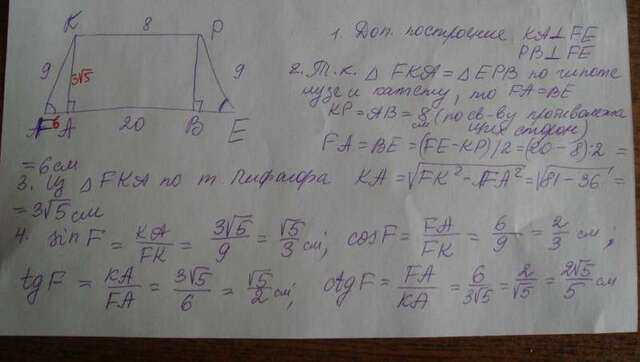 K 8 P
9 3√5 9
F 6 A 20 B E
1. Доп. построение KA⊥FE
PB⊥FE
2. Т.к. △FKA=△EPB по гипоте
нузе и катету, то FA=BE
KP=AB=8 см (по св-ву противолежа
щих сторон)
FA=BE=(FE-KP)/2=(20-8):2=
=6см
3. Из △FKA по т. Пифагора KA=√FK²-FA²=√81-36=
=3√5 см
4. sinF=KA/FK=3√5/9=√5/3 см; cosF=FA/FK=6/9=2/3 см;
tgF=KA/FA=3√5/6=√5/2 см; ctgF=FA/KA=6/3√5=2/√5=2√5/5 см